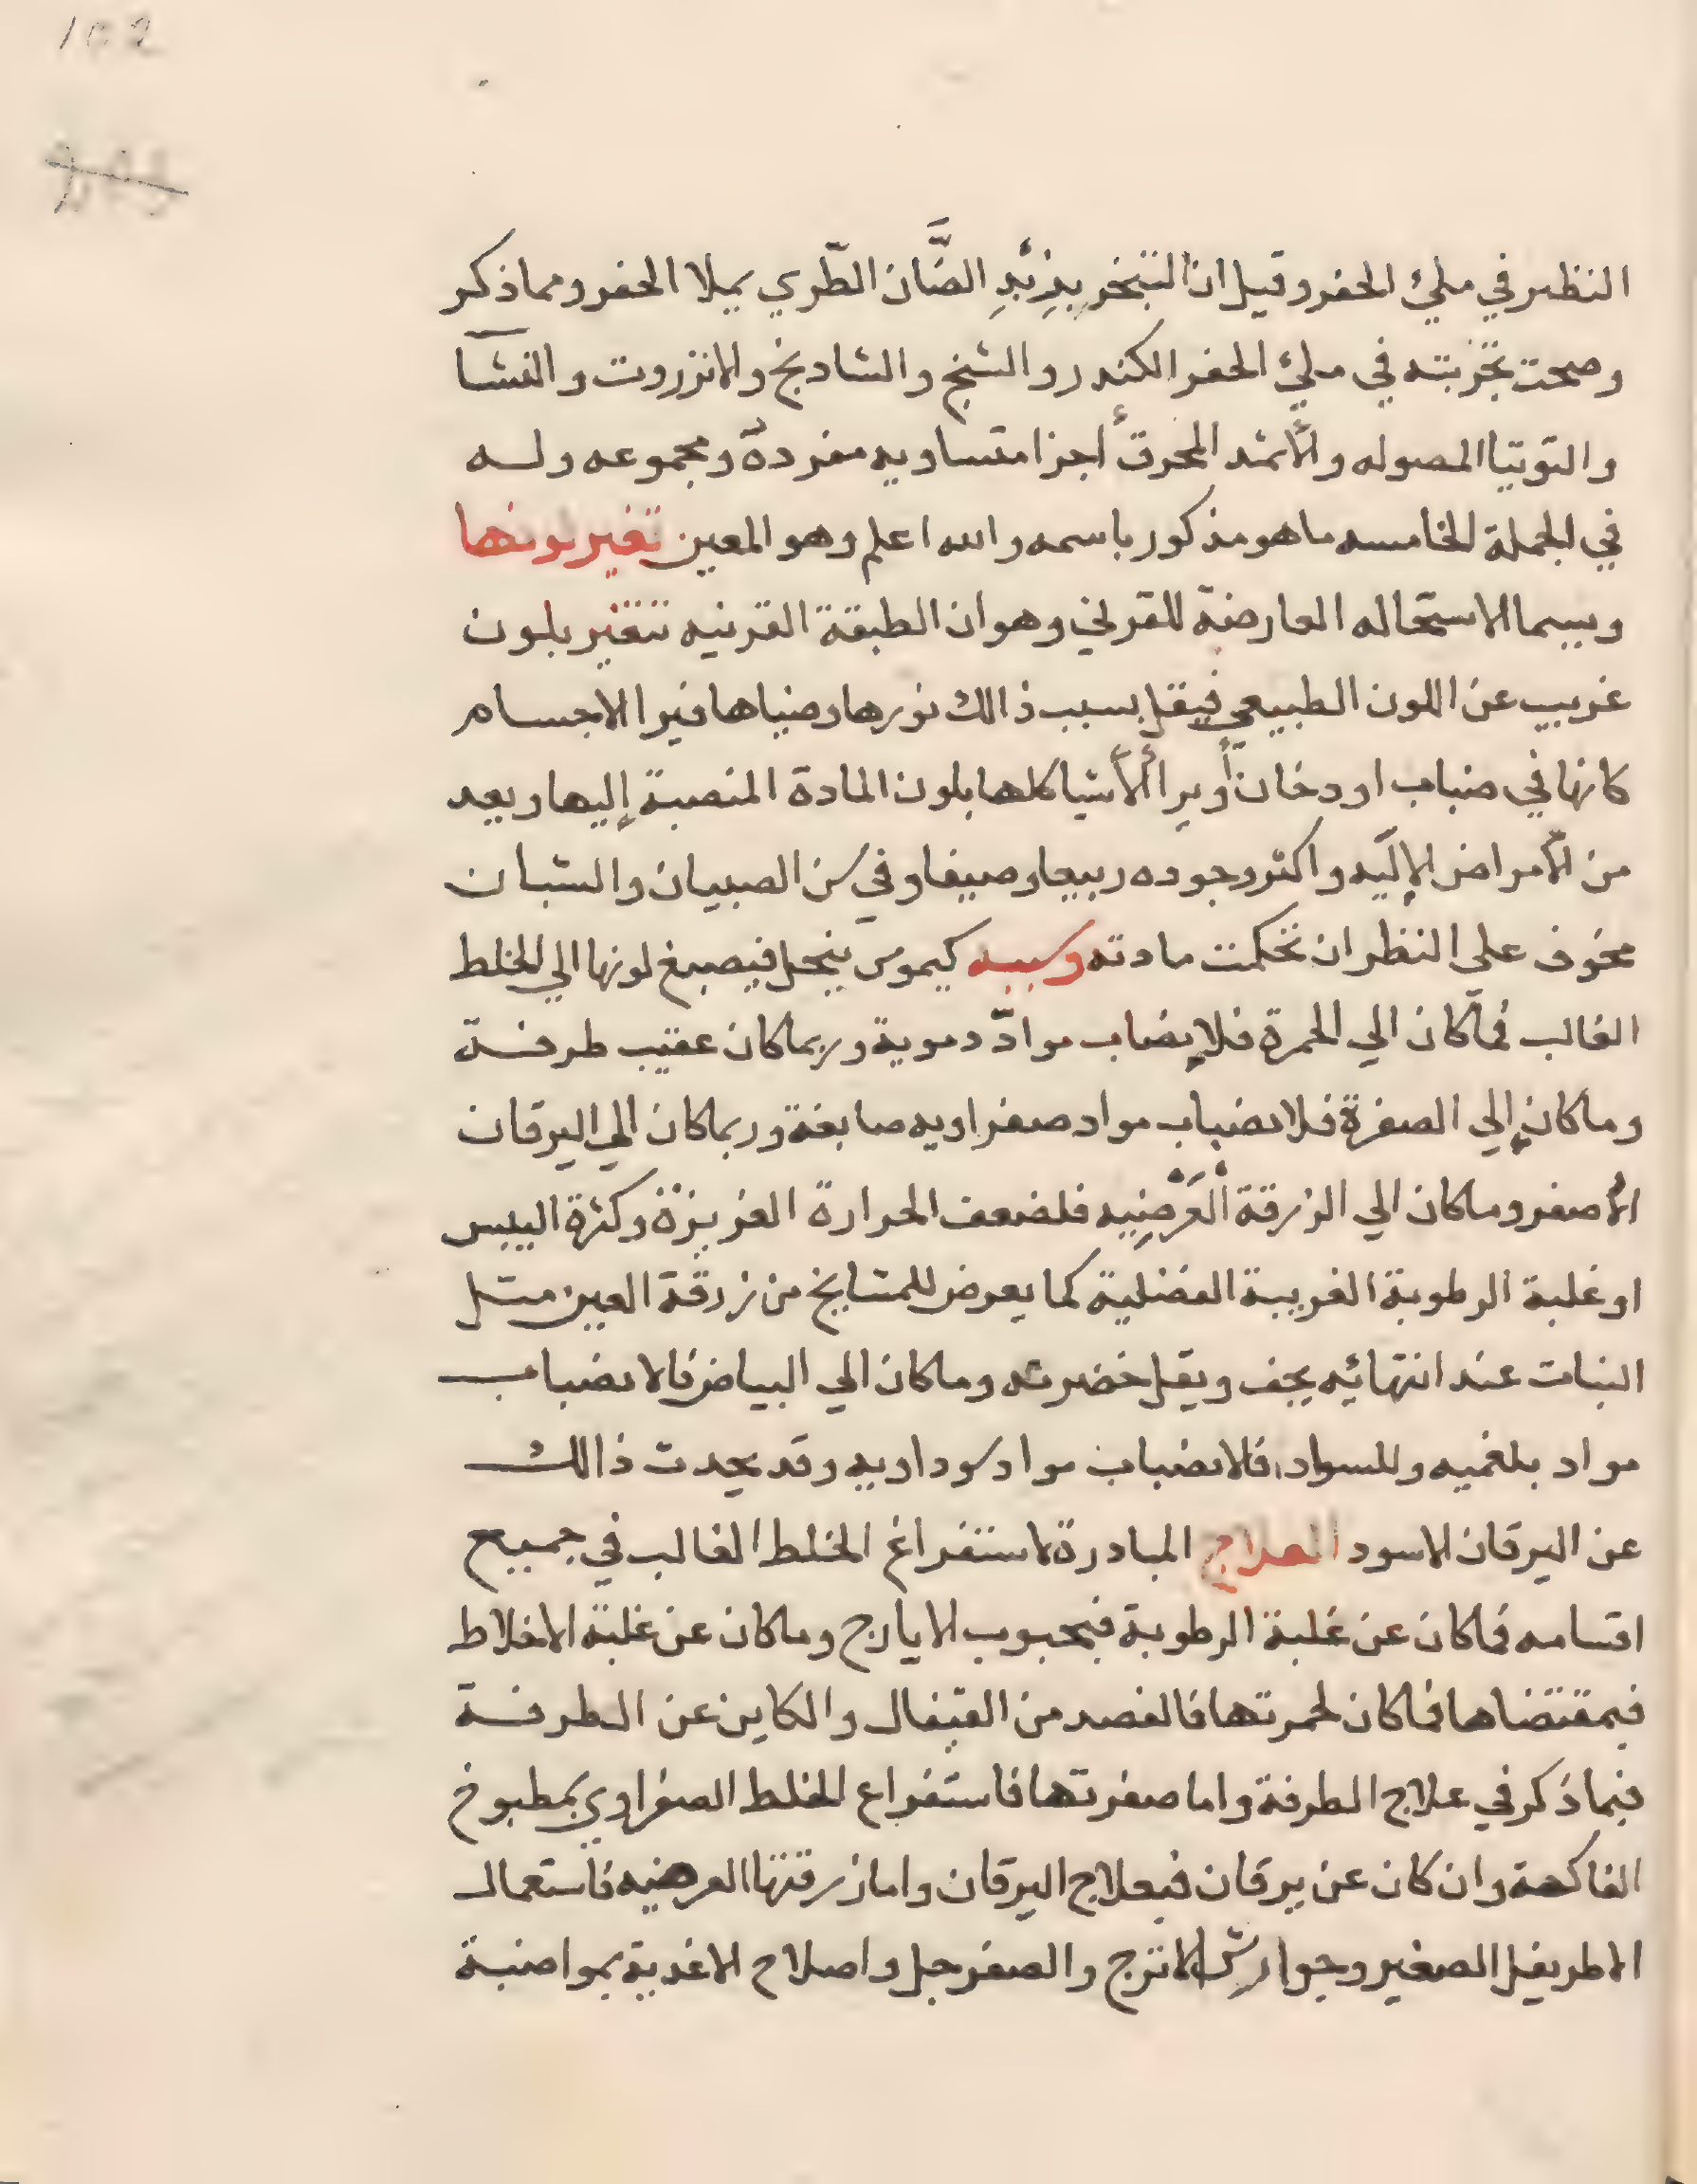 102
النظر في ملئ الحفر وقيل ان التبخر بزبد الضَّان الطّري يملا الحفر ومما ذكر
وصحت تجربته في ملئ الحفر الكندر والشنج والشادنج والانزروت والنشآ
والتوتيا المصوله والأثمد المحرق أجزا متساويه مفردة ومجموعه ولـه
في الجملة الخامسه ما هو مذكور باسمه والله اعلم وهو المعين تغير لونها
ويسما الاستحاله العارضة للقرني وهو ان الطبقة القرنيه تتغير بلون
غريب عن اللون الطبيعي فيقل بسبب ذالك نورها وضياها فيرا الاجسام
كانها في ضباب او دخان أويرا الأشيا كلها بلون المادة المنصبة إليها ويعد
من الأمراض الإليه واكثر وجوده ربيعا وصيفا وفي سن الصبيان والشبان
مخوف على النظر ان تحكمت مادته وسببه كيموس ينحل فيصبغ لونها الي الخلط
الغالب فما كان الي الحمرة فلإ نضاب موادّ دموية وربما كان عقيب طرفـة
وما كان إلي الصفرة فلا نضباب مواد صفراويه صابغة وربما كان الي اليرقان
الأصفر وما كان الي الزرقة الْعَرْضِيه فلضعف الحرارة الغريزة وكثرة اليبس
او غلبة الرطوبة الغريبة الفضلية كما يعرض للمشايخ من زرقة العين مثـل
النبات عند انتهائيه يجف ويقل خضرته وما كان الي البياض فالا نضباب
مواد بلغميه وللسواد فالا نضباب مواد سوداويه وقد يحدث ذالك
عن اليرقان الاسود العلاج المبادرة لاستفراغ الخلط الغالب في جميع
اقسامه فما كان عن غلبة الرطوبة فبحبوب الايارج وما كان عن غلبة الاخلاط
فبمقتضاها فما كان لحمرتها فالفصد من القيفال والكاين عن الطرفـة
فبما ذكر في علاج الطرفة واما صفرتها فاستفراع الخلط الصفراوي بمطبوخ
الفاكهة وان كان عن يرقان فبعلاج اليرقان واما زرقتها العرضيه فاستعمال
الاطريفل الصغير وجوارش الاترج والصفرجل واصلاح الاغدية بمواضبة